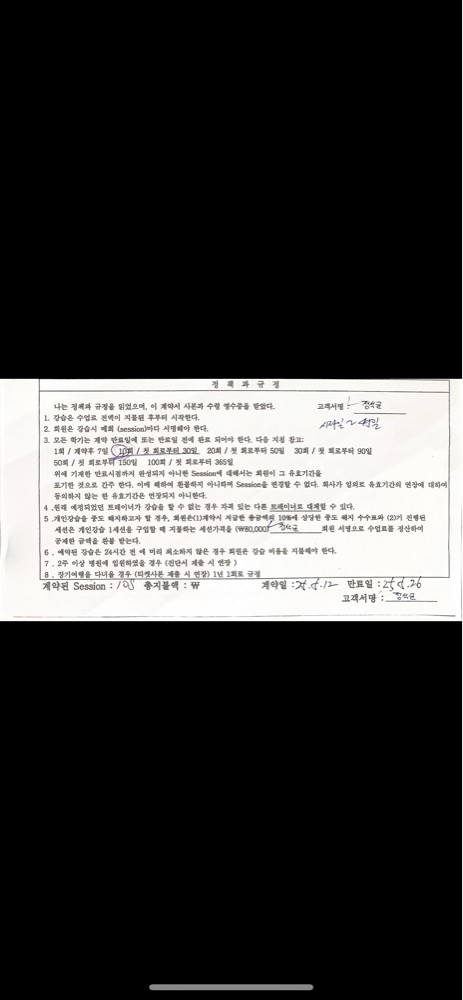 정 책 과 규 정
나는 정책과 규정을 읽었으며, 이 계약서 사본과 수령 영수증을 받았다. 고객서명
1. 강습은 수업료 전액이 지불된 후부터 시작한다.
2. 회원은 강습시 매회 (session)마다 서명해야 한다.
3. 모든 학기는 계약 만료일에 또는 만료일 전에 완료 되어야 한다. 다음 지침 참고:
1회 / 계약후 7일 10회 / 첫 회로부터 30일 20회 / 첫 회로부터 50일 30회 / 첫 회로부터 90일
50회 / 첫 회로부터 150일 100회 / 첫 회로부터 365일
위에 기재한 만료시점까지 완성되지 아니한 Session에 대해서는 회원이 그 유효기간을
포기한 것으로 간주 한다. 이에 해하여 환불하지 아니하며 Session을 변경할 수 없다. 회사가 임의로 유효기간의 연장에 대하여
동의하지 않는 한 유효기간은 연장되지 아니한다.
4 .원래 예정되었던 트레이너가 강습을 할 수 없는 경우 자격 있는 다른 트레이너로 대체할 수 있다.
5 .개인강습을 중도 해지하고자 할 경우, 회원은(1)계약시 지급한 총금액의 10%에 상당한 중도 해지 수수료와 (2)기 진행된
세션은 개인강습 1세션을 구입할 때 지불하는 세션가격을 (₩80,000) 회원 서명으로 수업료를 정산하여
공제한 금액을 환불 받는다.
6 . 예약된 강습은 24시간 전 에 미리 취소하지 않은 경우 회원은 강습 비용을 지불해야 한다.
7 . 2주 이상 병원에 입원하였을 경우 (진단서 제출 시 연장 )
8 . 장기여행을 다녀올 경우 (티켓사본 제출 시 연장) 1년 1회로 규정
계약된 Session : 총지불액 : ₩ 계약일 : 25.5.12 만료일 : 25.6.26
고객서명 :